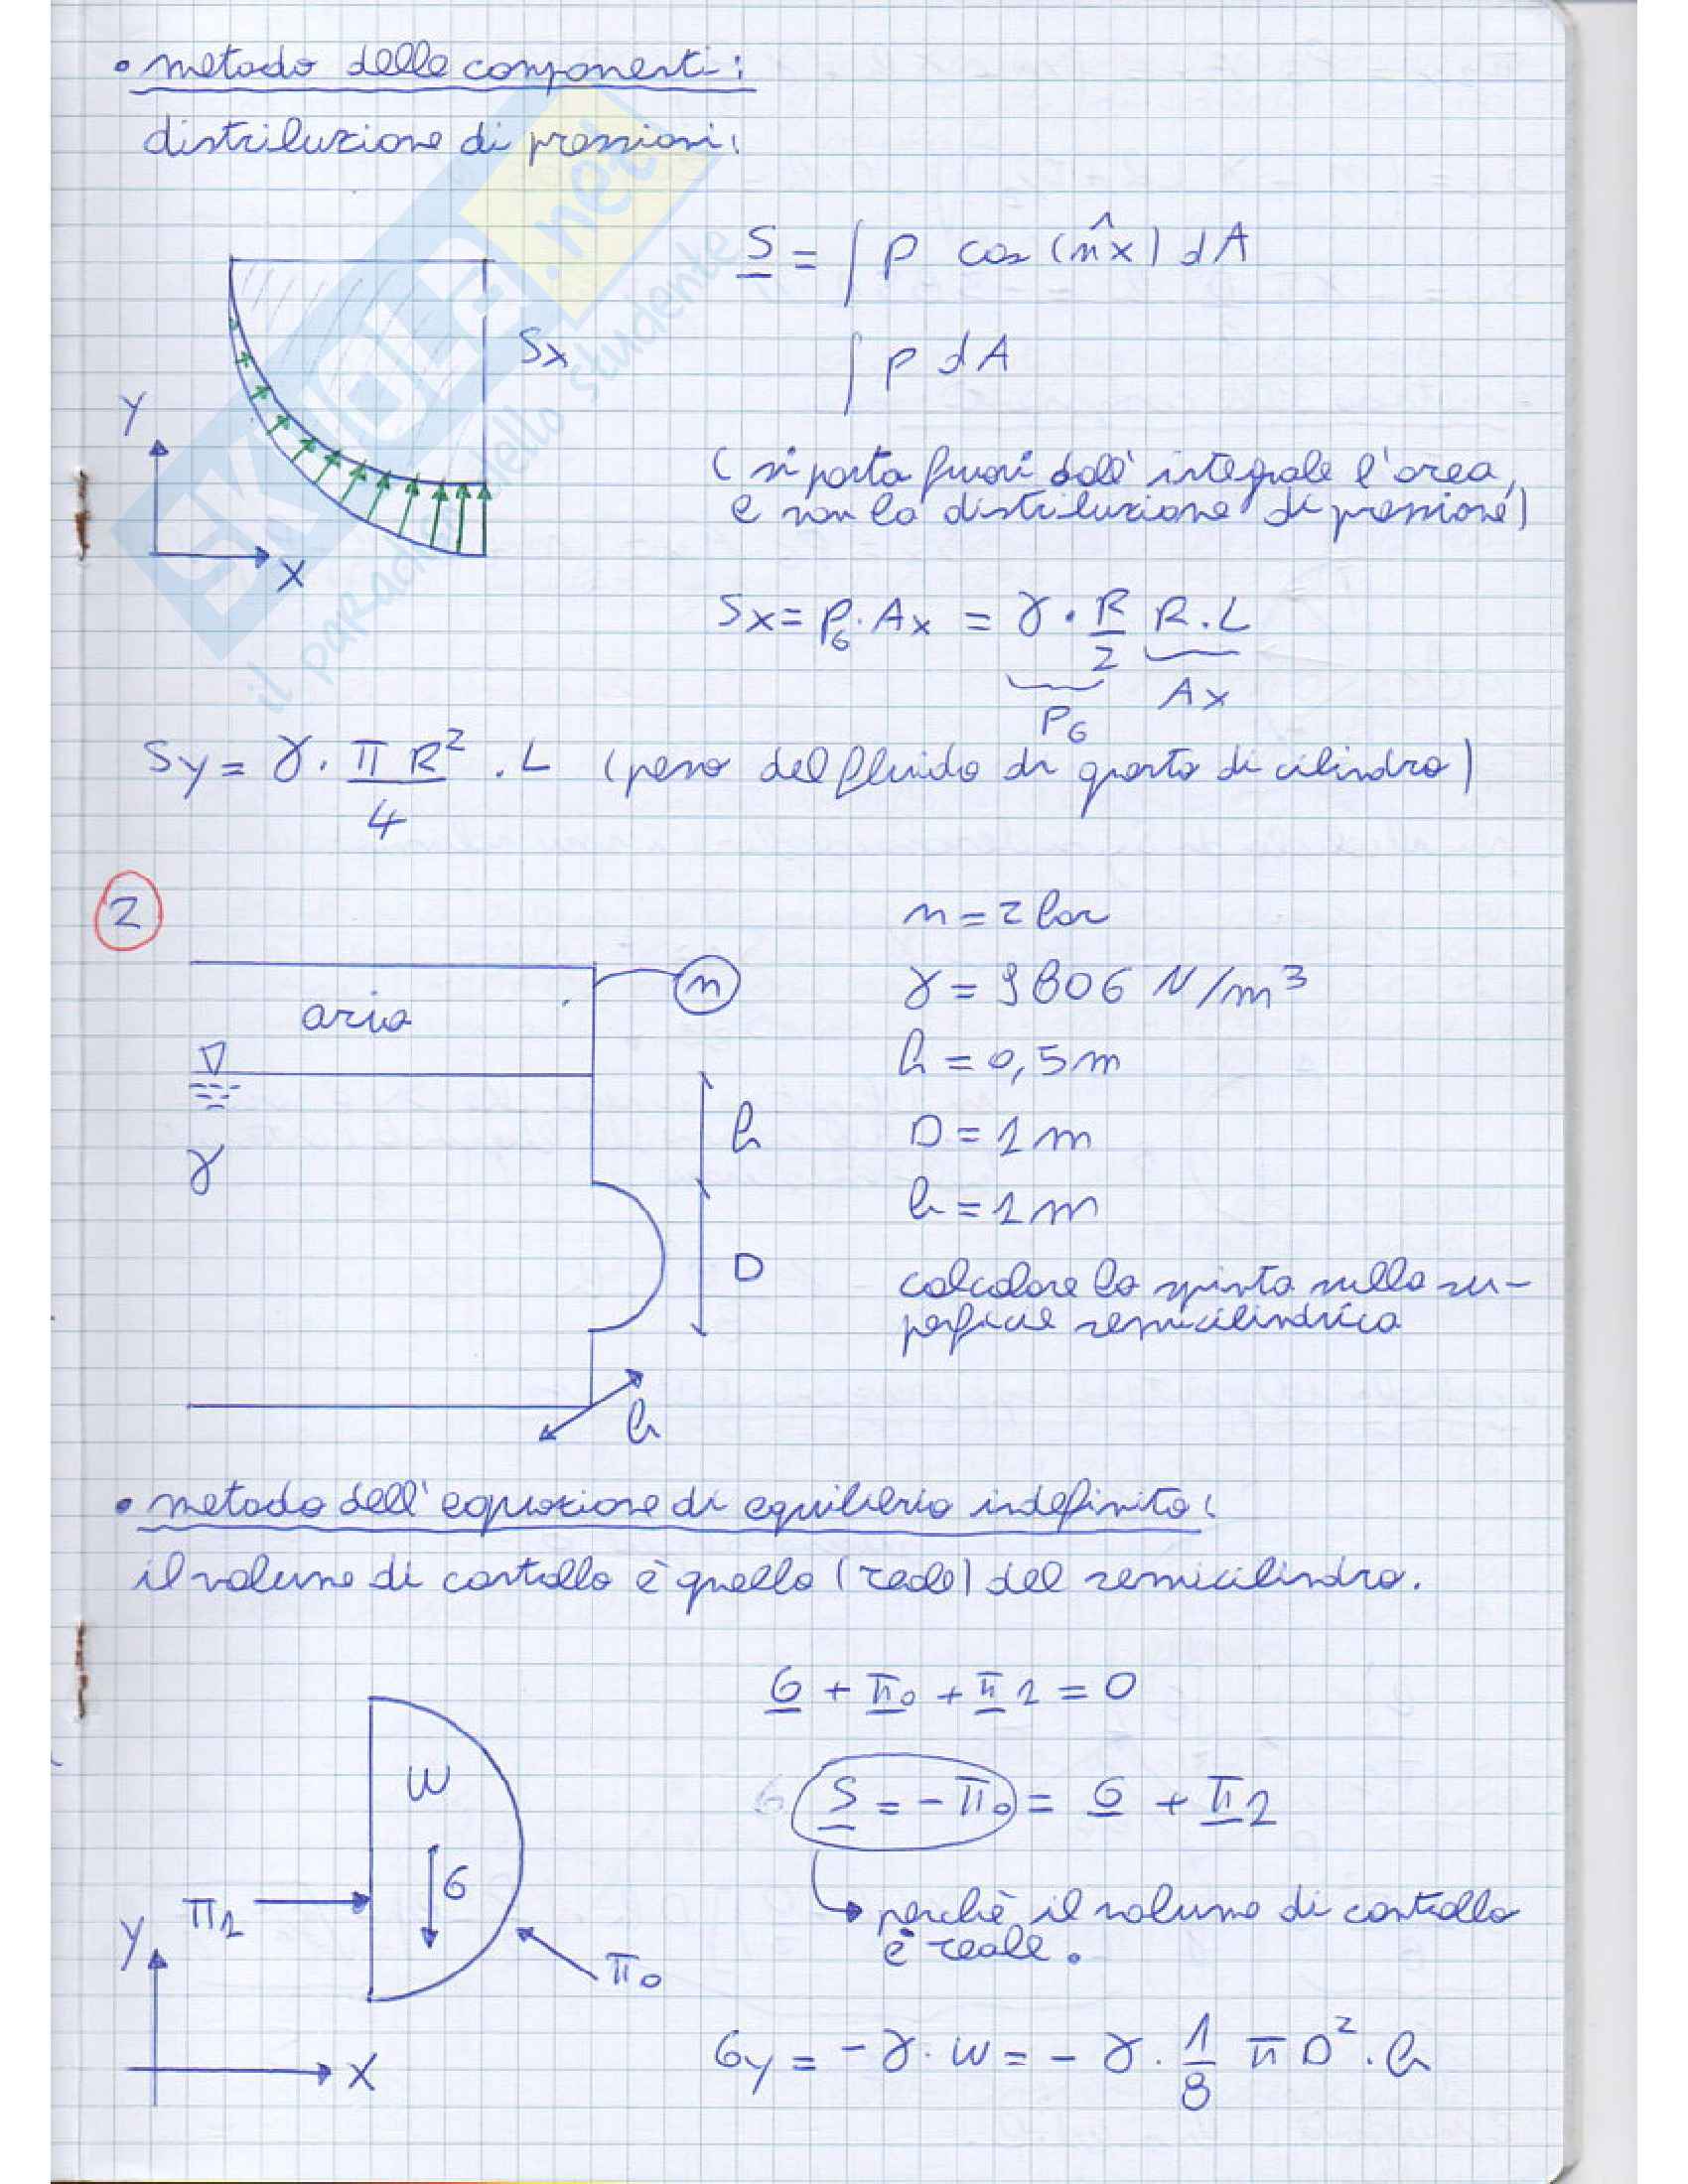 • metodo delle componenti:
distribuzione di pressioni:
S = ∫ p cos (n̂x) dA
Sx
∫ p dA
Y
X
(si porta fuori dall' integrale l'area,
e non la distribuzione di pressione)
Sx = PG · Ax = γ · R/2 R · L
PG
Ax
Sy = γ · π R² / 4 · L (peso del fluido di quarto di cilindro)
2
n = 2 bar
aria
n
γ = 9806 N/m³
h = 0,5 m
h
γ
D = 1 m
b = 1 m
D
calcolare la spinta sulla su-
perficie semicilindrica
b
• metodo dell'equazione di equilibrio indefinito:
il volume di controllo è quello (reale) del semicilindro.
G + π0 + π1 = 0
W
S = - π0 = G + π1
G
π1
perchè il volume di controllo
è reale.
Y
π0
X
Gy = - γ · W = - γ · 1/8 π D² · b
SKUOLA.net
il paradiso dello studente